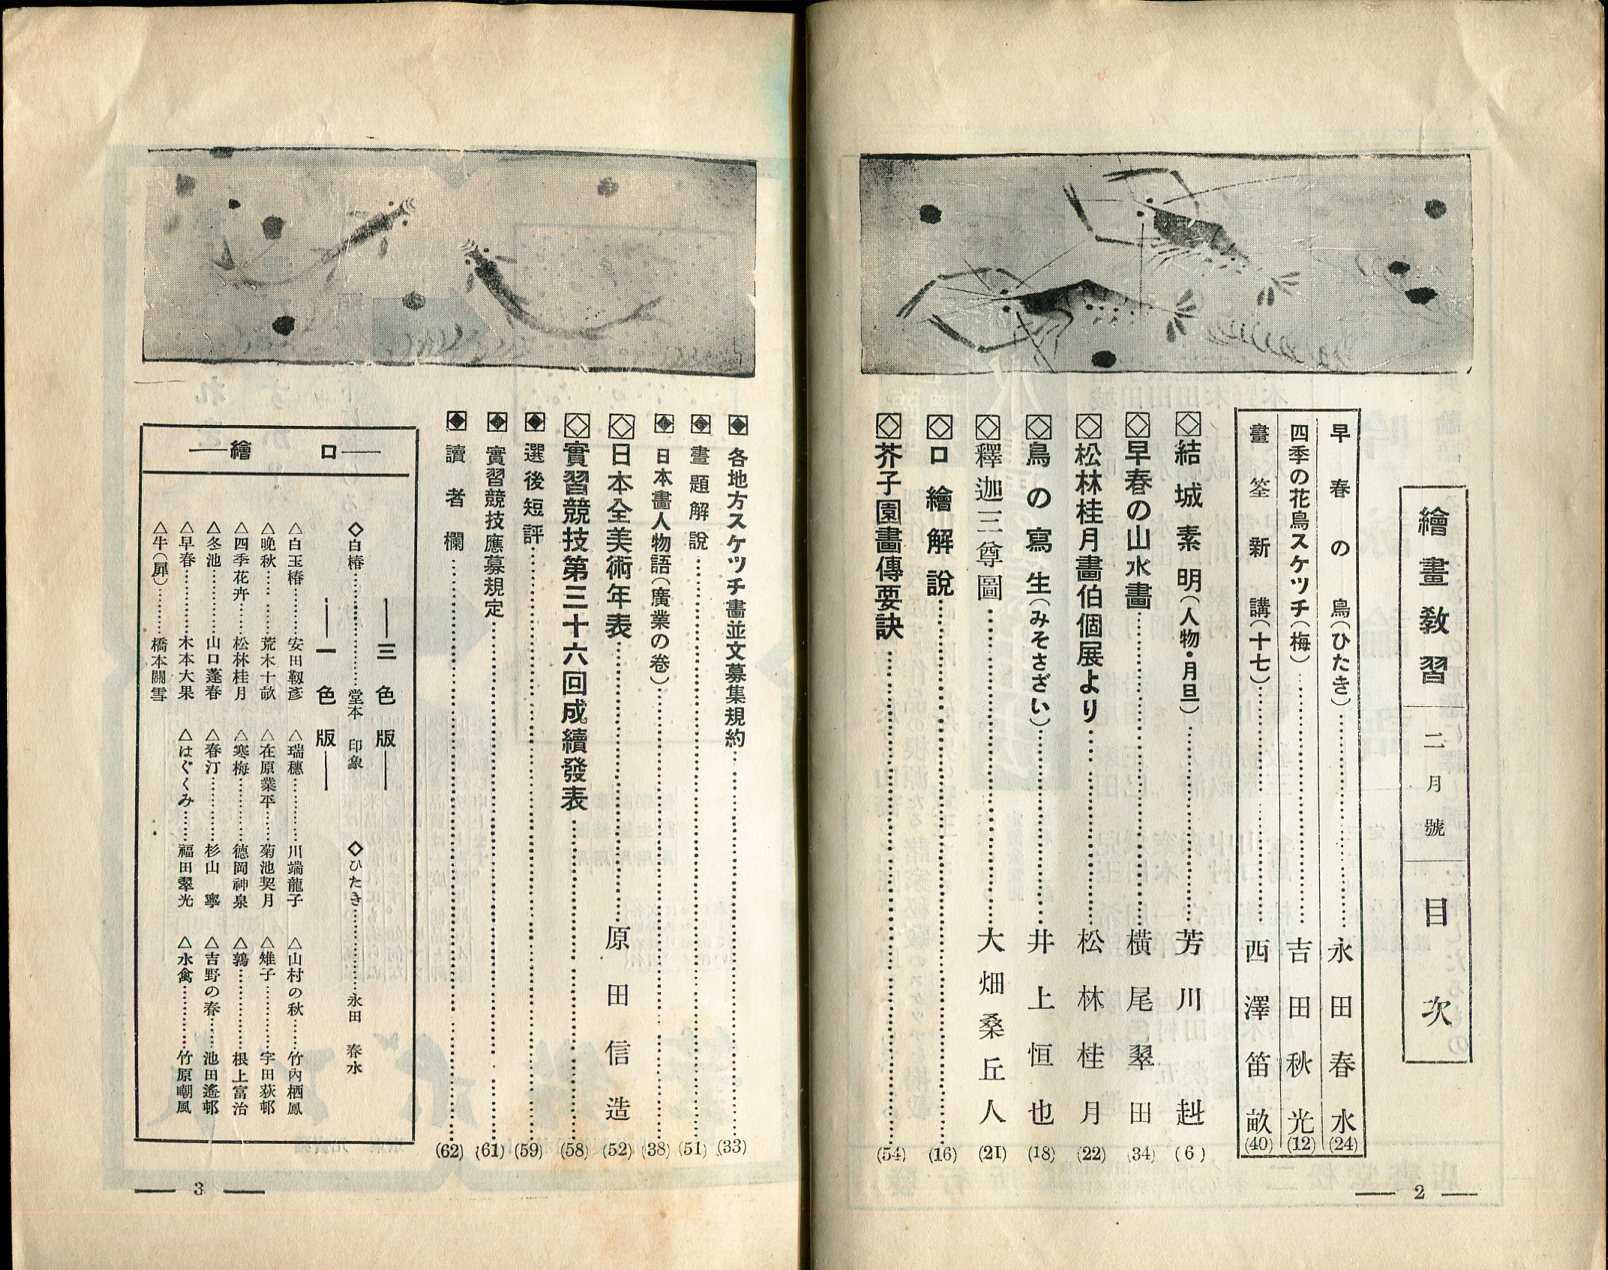 繪畫教習 二月號 目次
早春の鳥(ひたき)……永田春水(24)
四季の花鳥スケツチ(梅)……吉田秋光(12)
畫筌新講(十七)……西澤笛畝(40)
結城素明(人物・月旦)……芳川赳(6)
早春の山水畫……橫尾翠田(34)
松林桂月畫伯個展より……松林桂月(22)
鳥の寫生(みそさざい)……井上恒也(18)
釋迦三尊圖……大畑桑丘人(21)
口繪解說……(16)
芥子園畫傳要訣……(54)
2
各地方スケツチ畫並文募集規約……(33)
畫題解說……(51)
日本畫人物語(廣業の卷)……(38)
日本全美術年表……原田信造(52)
實習競技第三十六回成績發表……(58)
選後短評……(59)
實習競技應募規定……(61)
讀者欄……(62)
口繪
三色版
◇白椿……堂本印象 ◇ひたき……永田春水
一色版
△白玉椿……安田靱彥 △瑞穗……川端龍子 △山村の秋……竹內栖鳳
△晚秋……荒木十畝 △在原業平……菊池契月 △雉子……宇田荻邨
△四季花卉……松林桂月 △寒梅……德岡神泉 △鶉……根上富治
△冬池……山口蓬春 △春汀……杉山寧 △吉野の春……池田遙邨
△早春……木本大果 △はぐくみ……福田翠光 △水禽……竹原嘲風
△牛(扉)……橋本關雪
3